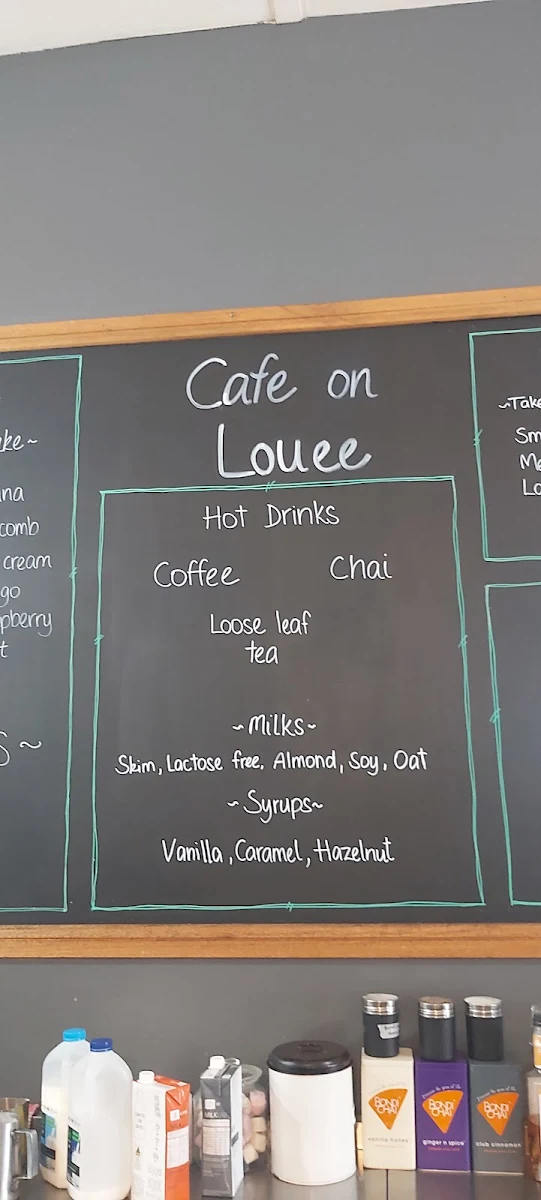 Cafe on
Louee
Hot Drinks
Coffee Chai
Loose leaf
tea
~Milks~
Skim, Lactose free, Almond, Soy, Oat
~Syrups~
Vanilla, Caramel, Hazelnut
cream
~Take
Sm
Me
Lo
MILK
BONDI
CHAI
vanilla honey
BONDI
CHAI
ginger n spice
BONDI
CHAI
club cinnamon